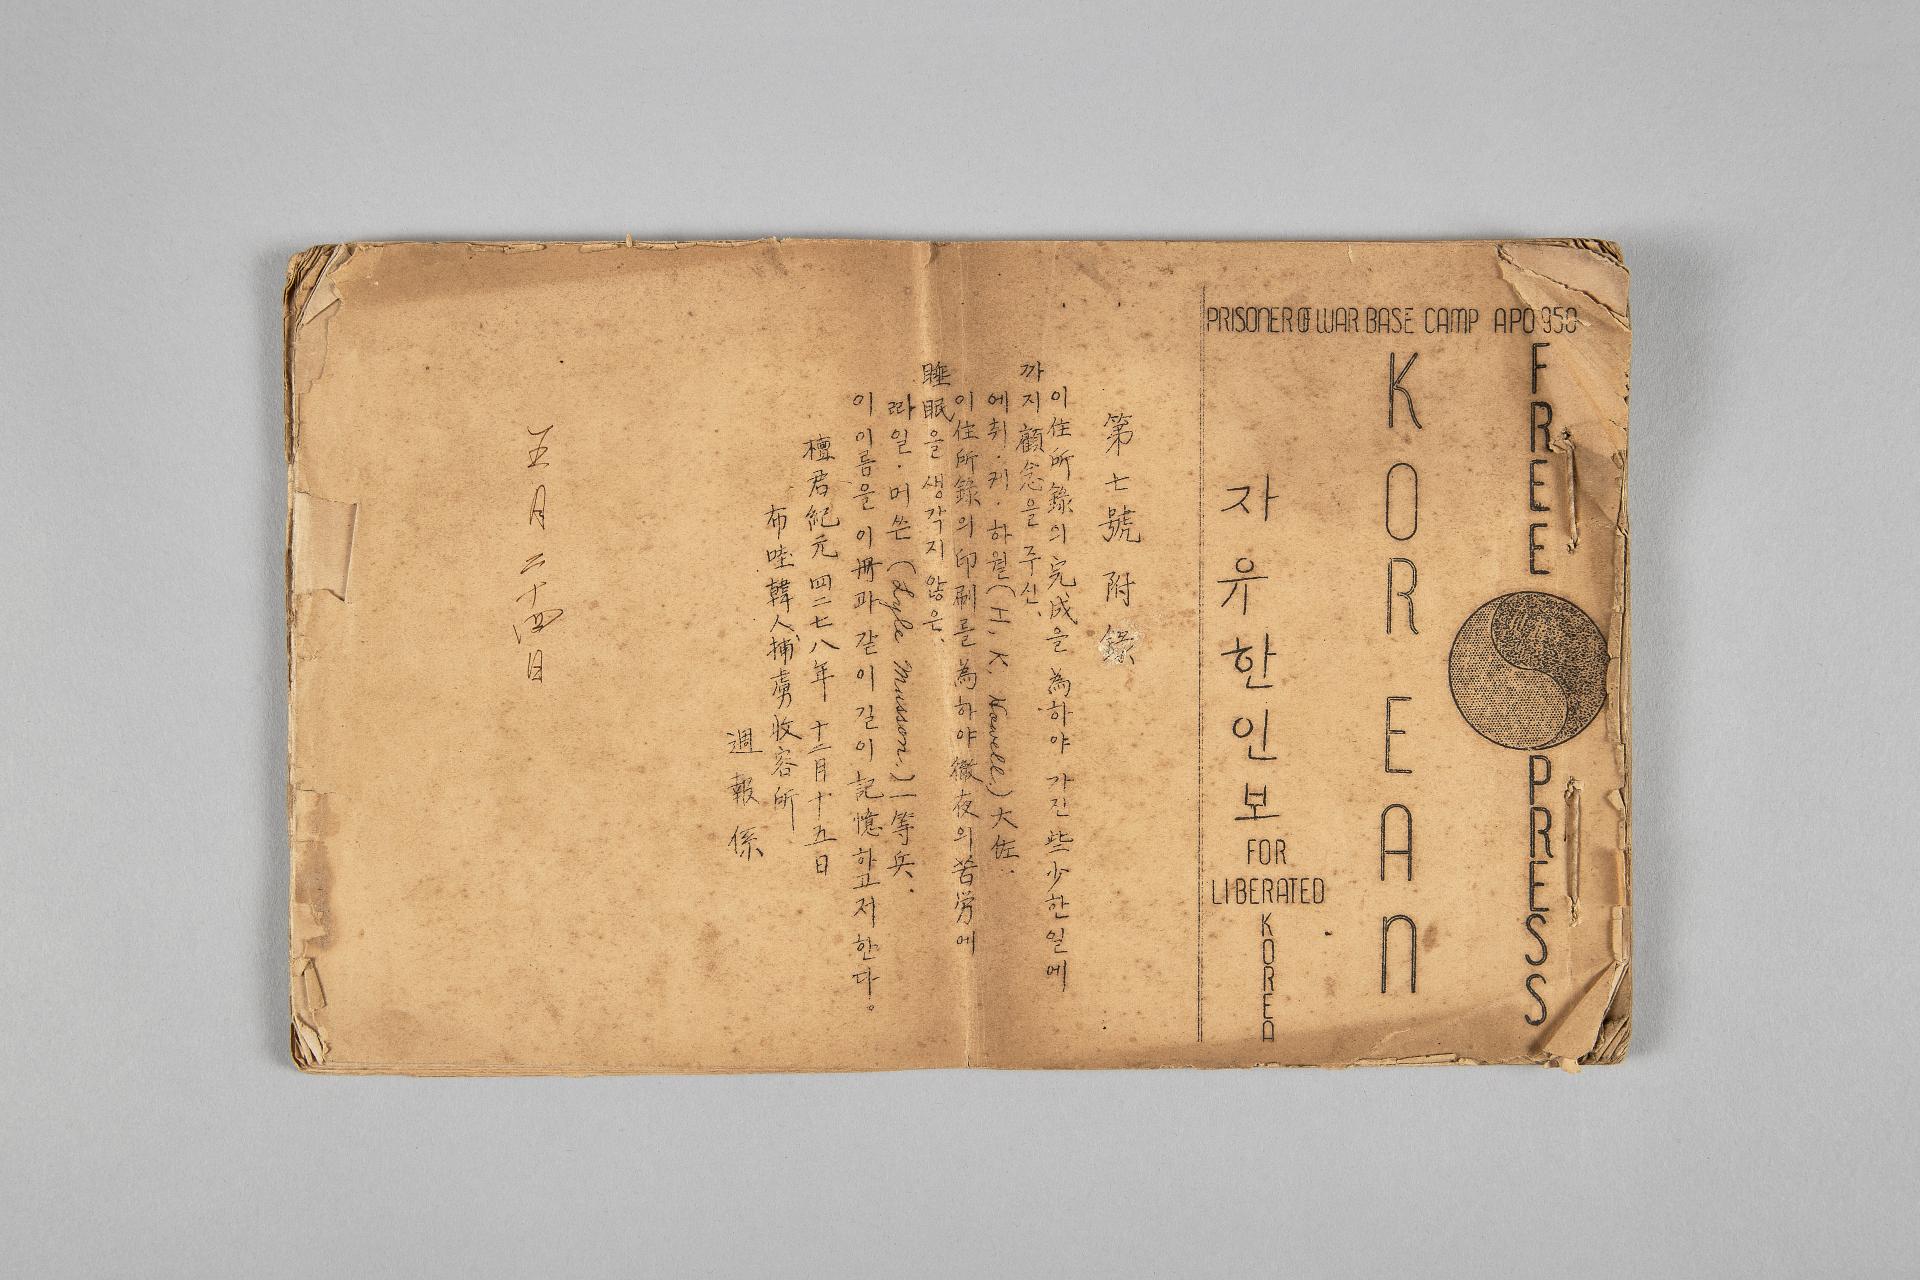 PRISONER OF WAR BASE CAMP APO 950
FREE PRESS
KOREAN
자유한인보
FOR
LIBERATED
KOREA
第七號附錄
이住所錄의完成을為하야가진些少한일에
까지顧念을주신.
에취·키·하웰(H. K. Howell.)大佐.
이住所錄의印刷를為하야徹夜의苦労에
睡眠을생각지않은.
라일·머쓴(Lyle Musson.)一等兵.
이이름을이冊과같이길이記憶하고저한다。
檀君紀元四二七八年十二月十五日
布哇韓人捕虜收容所
週報係
五月二十四日